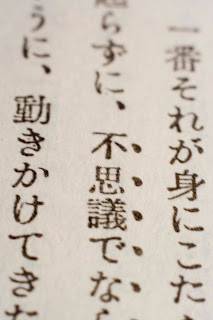 一番それが身にこた
らずに、不思議でなら
うに、動きかけてきた